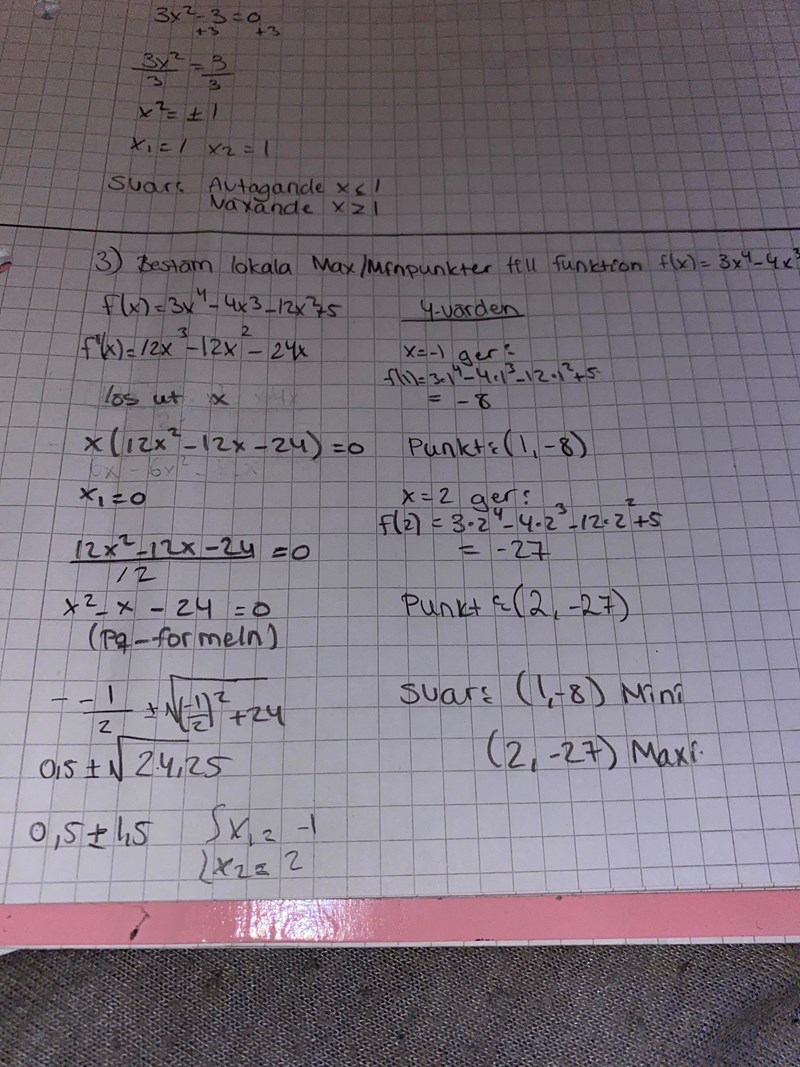 3x² - 3 = 0
+3 +3
3x²/3 = 3/3
x² = ± 1
x₁ = 1 x₂ = 1
Svar: Avtagande x ≤ 1
Växande x ≥ 1
3) Bestäm lokala Max/Minpunkter till funktion f(x) = 3x⁴ - 4x³
f(x) = 3x⁴ - 4x3 - 12x²+5
f'(x) = 12x³ - 12x² - 24x
lös ut x
x(12x² - 12x - 24) = 0
x₁ = 0
(12x² - 12x - 24)/12 = 0
x² - x - 24 = 0
(Pq-formeln)
- -1/2 ± √((-1/2)² + 24)
0,5 ± √24,25
0,5 ± 1,5 { x₁ = -1
{ x₂ = 2
Y-värden
x = -1 ger:
f(1) = 3·1⁴ - 4·1³ - 12·1² + 5
= -8
Punkt: (1, -8)
x = 2 ger:
f(2) = 3·2⁴ - 4·2³ - 12·2² + 5
= -27
Punkt: (2, -27)
Svar: (1, -8) Mini
(2, -27) Maxi.